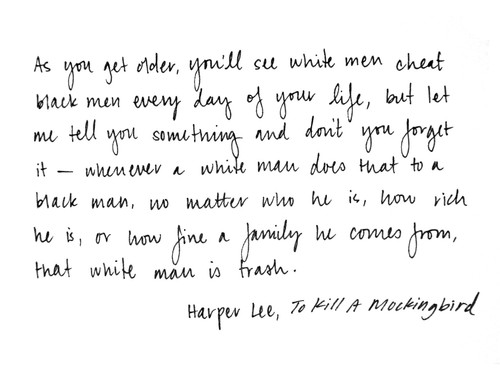 As you get older, you'll see white men cheat
black men every day of your life, but let
me tell you something and don't you forget
it – whenever a white man does that to a
black man, no matter who he is, how rich
he is, or how fine a family he comes from,
that white man is trash.
Harper Lee, To Kill A Mockingbird